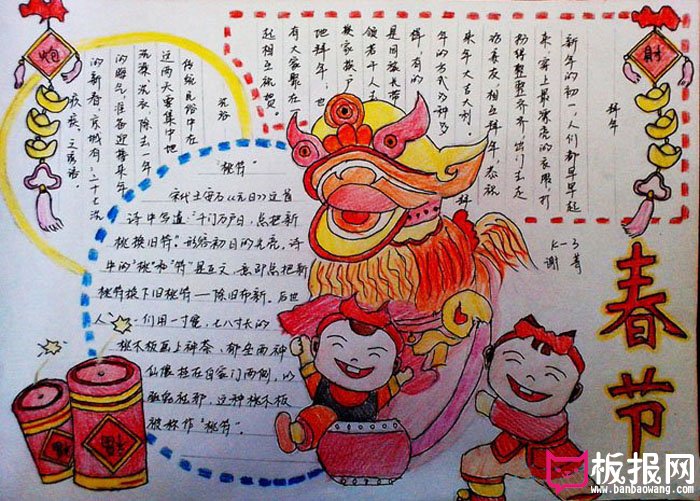 炮
财
拜年
新年的初一,人们都早早起
来,穿上最漂亮的衣服,打
扮得整整齐齐,出门去走
访亲友,相互拜年,恭祝
来年大吉大利。拜
年的方式多种多
样,有的
是同族长带
领若干人
挨家挨户
地拜年;也
有大家聚在
起相互祝贺。
洗浴
传统民俗中在
这两天要集中地
洗澡、洗衣,除去一年
的晦气,准备迎接来年
的新春,京城有"二十七洗
疚疾,之话语。
"桃符"
宋代王安石《元日》这首
诗中写道:"千门万户日,总把新
桃换旧符。"形容初日的光亮,诗
中的"桃"和"符"是互文,意即总把新
桃符换下旧桃符——除旧布新。后世
人们用一寸宽,七八寸长的
桃木板画上神荼、郁垒两神
仙像挂在自家门两侧,以
驱鬼祛邪,这种桃木板
被称作"桃符"。
K-3
谢菁
春节
板报网
www.banbaowang.com